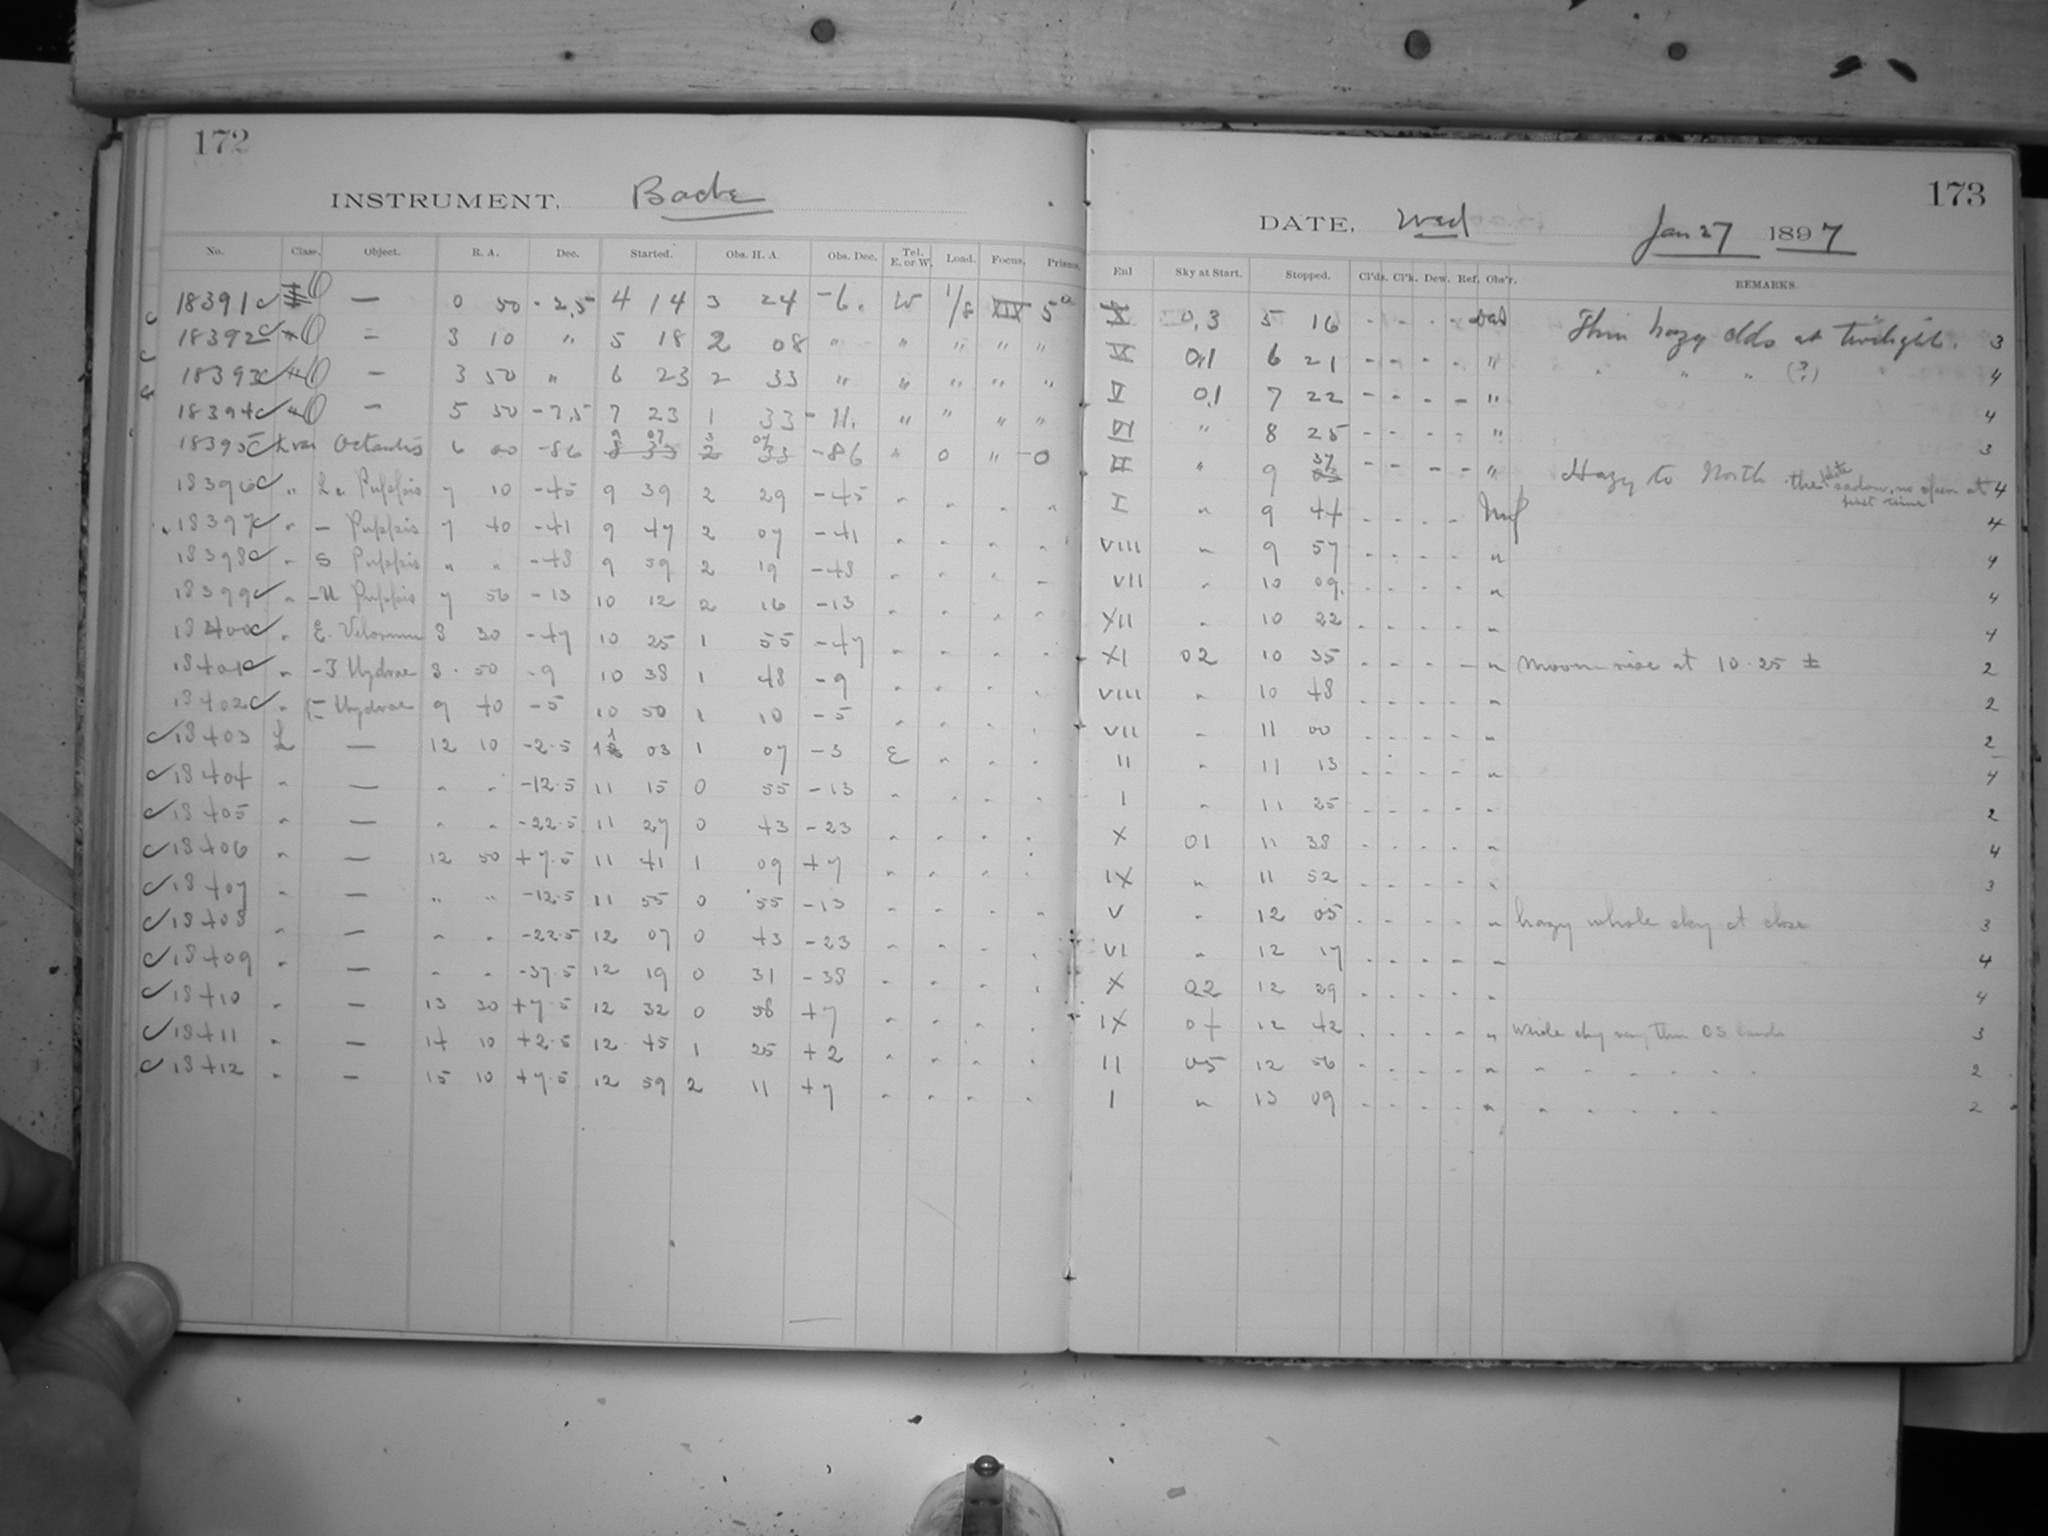 172
INSTRUMENT. Bache
No. Class. Object. R. A. Dec. Started. Obs. H. A. Obs. Dec. Tel. E. or W. Load. Focus. Prisms.
18391 — 0 50 -2.5 4 14 3 24 -6. W 1/8 XIX 5
18392 — 3 10 " 5 18 2 08 " " " " "
18393 — 3 50 " 6 23 2 33 " " " " "
18394 — 5 50 -7.5 7 23 1 33 -11. " " " "
18395 L var Octantis 6 00 -86 9 07 3 07 -86 " 0 " 0
18396 " L2 Puppis 7 10 -45 9 39 2 29 -45 " " " "
18397 " — Puppis 7 40 -41 9 47 2 07 -41 " " " "
18398 " S Puppis " " -48 9 59 2 19 -48 " " " "
18399 " -U Puppis 7 56 -13 10 12 2 16 -13 " " " "
18400 " E. Velorum 8 30 -47 10 25 1 55 -47 " " " "
18401 " -T Hydrae 8 50 -9 10 38 1 48 -9 " " " "
18402 " Hydrae 9 40 -5 10 50 1 10 -5 " " " "
18403 L — 12 10 -2.5 11 03 1 07 -3 E " " "
18404 " — " " -12.5 11 15 0 55 -13 " " " "
18405 " — " " -22.5 11 27 0 43 -23 " " " "
18406 " — 12 50 +7.5 11 41 1 09 +7 " " " "
18407 " — " " -12.5 11 55 0 55 -13 " " " "
18408 " — " " -22.5 12 07 0 43 -23 " " " "
18409 " — " " -37.5 12 19 0 31 -38 " " " "
18410 " — 13 30 +7.5 12 32 0 58 +7 " " " "
18411 " — 14 10 +2.5 12 45 1 25 +2 " " " "
18412 " — 15 10 +7.5 12 59 2 11 +7 " " " "
173
DATE. Wed Jan 27 1897
Enl Sky at Start. Stopped. Cl'ds. Cl'k. Dew. Ref. Obs'r. REMARKS.
X 0.3 5 16 - - - - Thin hazy clds at twilight. 3
0.1 6 21 - - - - " " " " (?) " 4
V 0.1 7 22 - - - - " 4
VI " 8 25 - - - - " 3
II " 9 37 - - - - " Hazy to North the plate at first time 4
I " 9 44 - - - - 4
VIII " 9 57 - - - - " 4
VII " 10 09 - - - - " 4
XII " 10 22 - - - - " 4
XI 02 10 35 - - - - " Moon rise at 10.25 ± 2
VIII " 10 48 - - - - " 2
VII " 11 00 - - - - " 2
II " 11 13 - - - - " 4
I " 11 25 - - - - " 2
X 01 11 38 - - - - " 4
IX " 11 52 - - - - " 3
V " 12 05 - - - - " hazy whole sky at close 3
VI " 12 17 - - - - " 4
X 02 12 29 - - - - " 4
IX 04 12 42 - - - - " Whole sky very thin CS bands 3
II 05 12 56 - - - - " " " " " " " 2
I " 13 09 - - - - " " " " " " 2